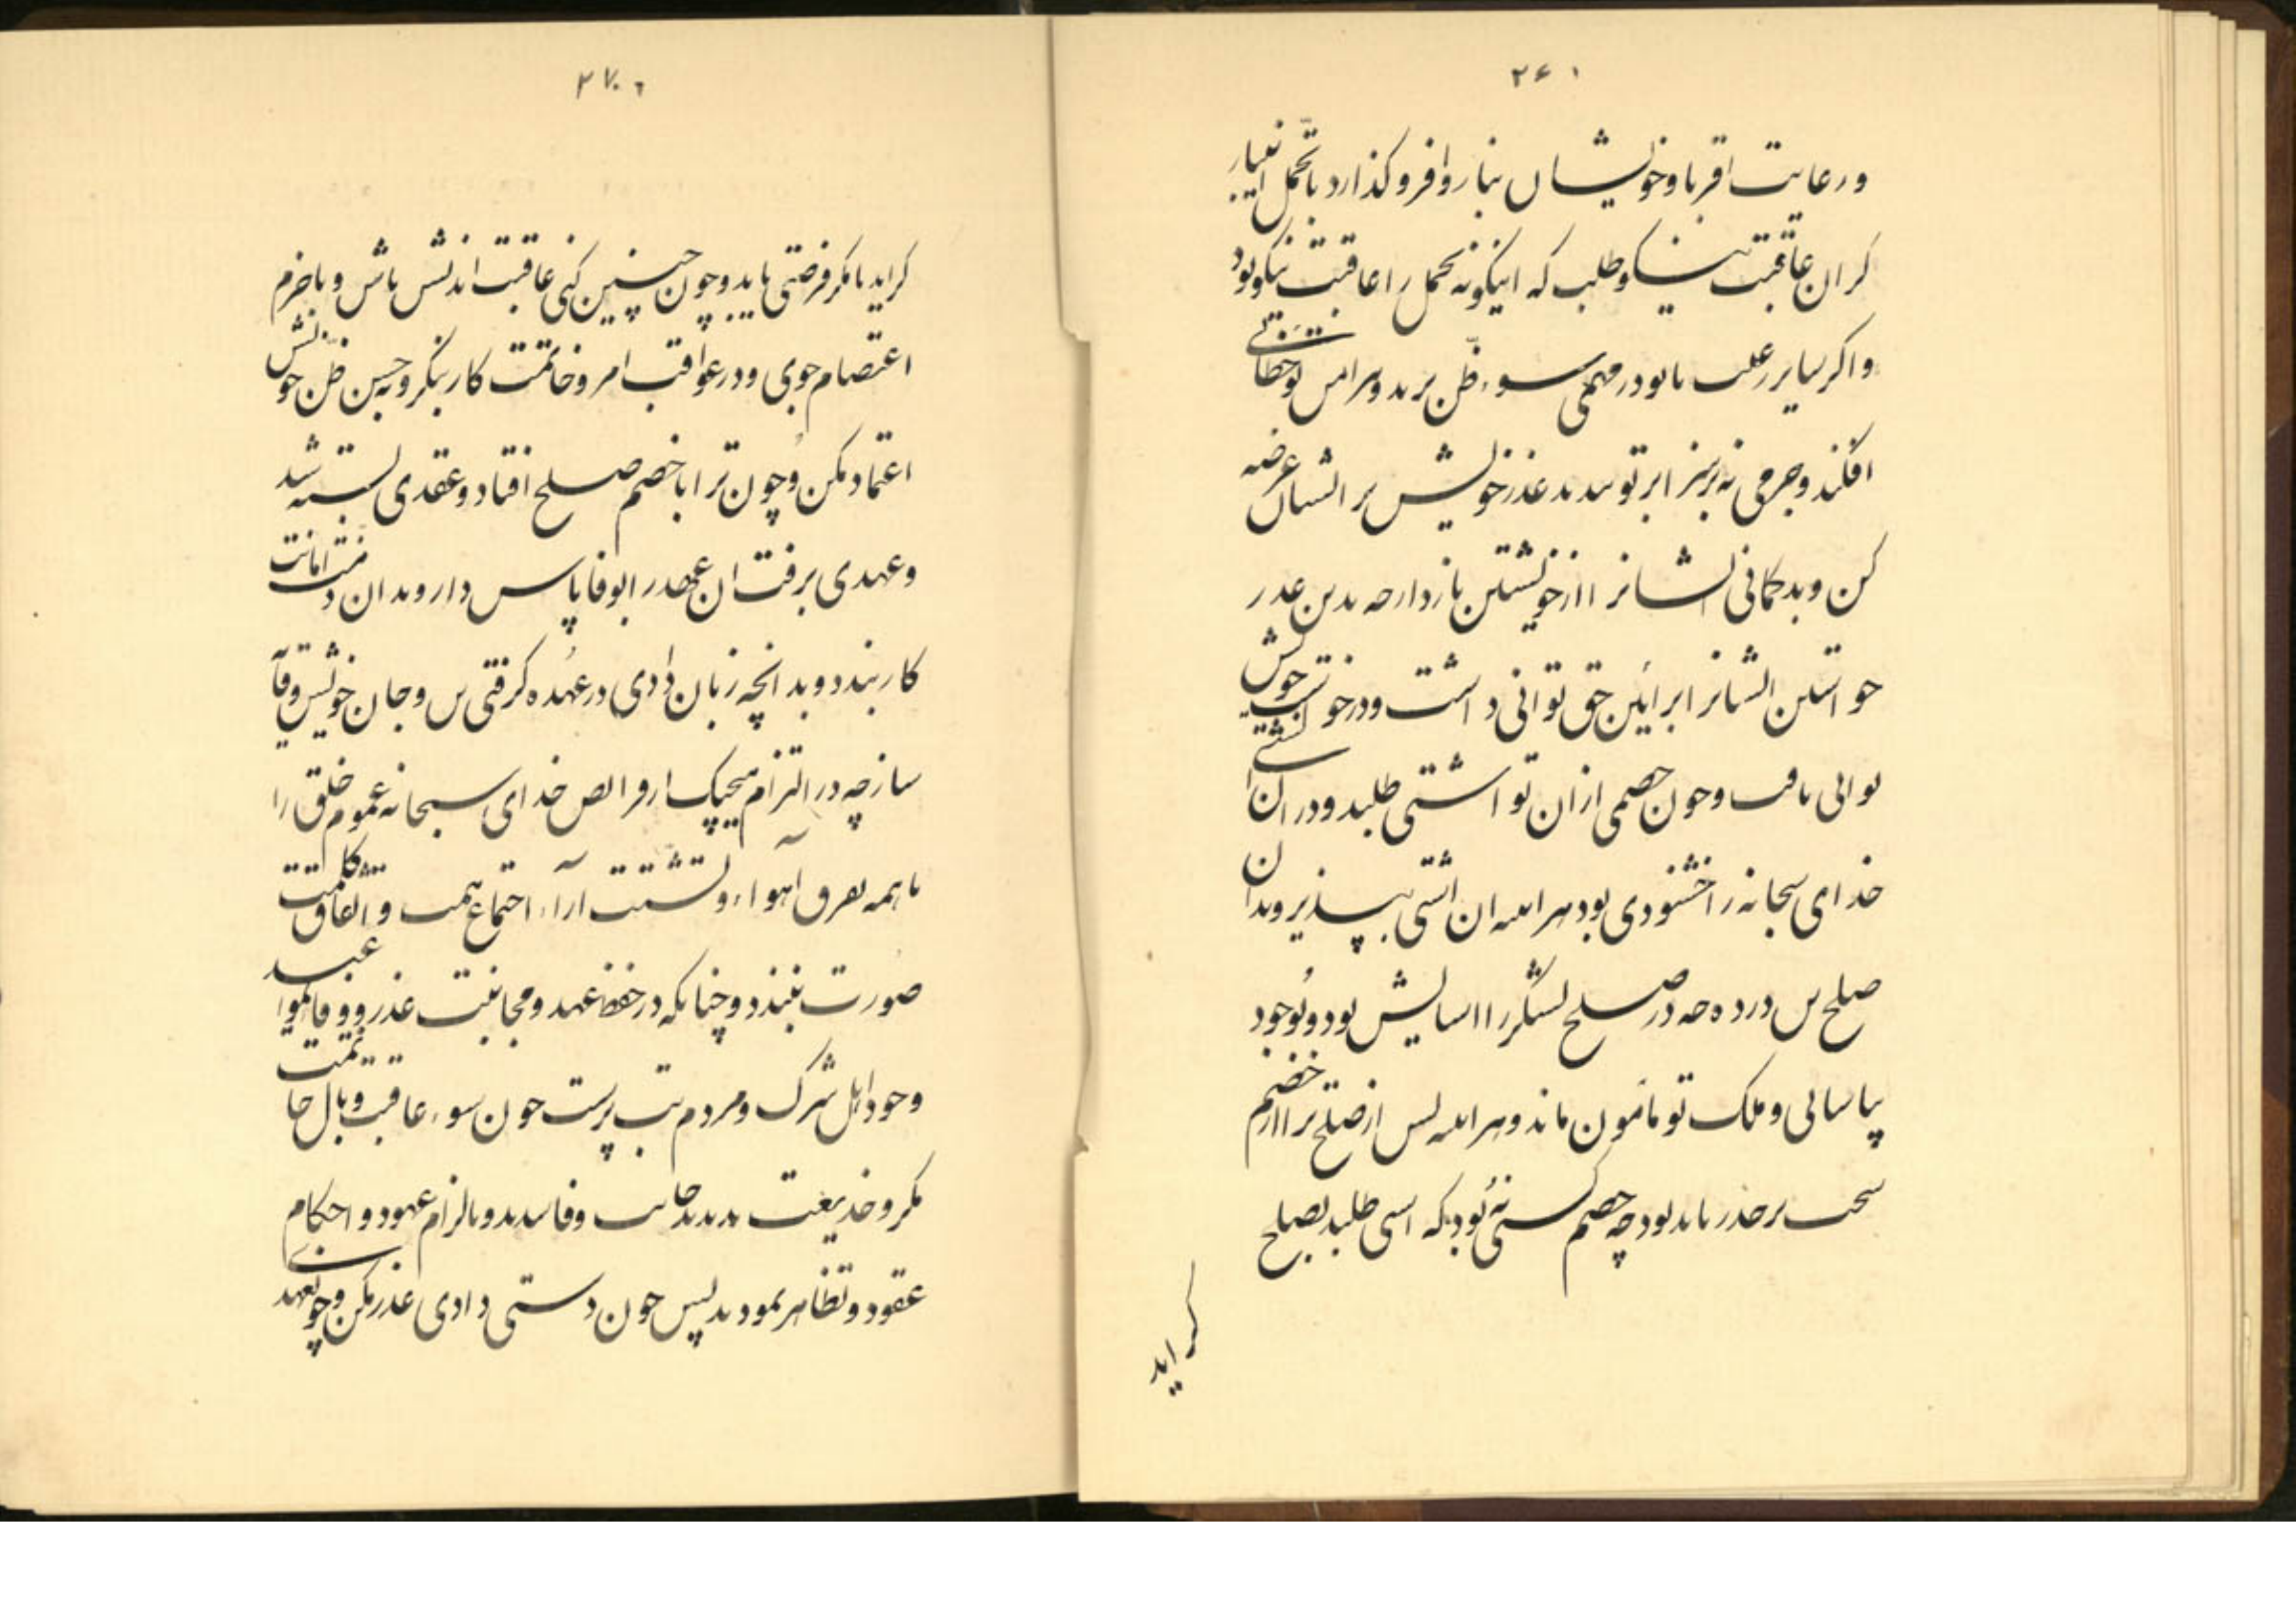 ۲۶۱
و رعایت اقربا و خویشان بنا روا فرو گذارد با تحمل این بار
گران عاقبت نیکو طلب که اینگونه تحمل را عاقبت نیکو بود
و اگر سایر رعیت با تو در مهمی سوء ظن برند و مر امن تو خطائی
افکند و جرمی نه بر سزا بر تو بندند عذر خویش بر ایشان عرضه
کن و بدگمانی ایشانرا از خویشتن باز دار چه بدین عذر
خواستن ایشانرا بر این حق توانی داشت و در خویشتن
توانی یافت و چون خصمی از ان تو اشتی طلبد و در ان اشتی
خدای سبحانه را خشنودی بود هر اینه ان اشتی بپذیر و بدان
صلح تن در ده چه در صلح لشگر را اسایش بود و تو خود
بیاسائی و ملک تو مأمون ماند و هر اینه پس از صلح ترا از خصم
سخت بر حذر باید بود چه خصم نه بود که اشتی طلبد بصلح
گراید
۲۷۰
گراید با مکر فرصتی یابد و چون چنین کنی عاقبت اندیش باش و با حزم
اعتصام جوی و در عواقب امر و خاتمت کار بنگر و به حسن ظن خویش
اعتماد مکن و چون ترا با خصم صلح افتاد و عقدی بسته شد
و عهدی برفت ان عهد را بوفا پاس دار و بدان ذمت امانت
کار بند و بدانچه زبان دادی در عهده گرفتی تن و جان خویش وقاء
ساز چه در التزام هیچیک از فرائض خدای سبحانه عموم خلق را
با همه تفرق اهواء و تشتت آراء اجتماع همت و اتفاق کلمت
صورت نبندد و چنانکه در حفظ عهد و مجانبت غدر و وفا بمواعید
و خود اهل شرک و مردم بت پرست چون سوء عاقبت و بال خاتمت
مکر و خدیعت بدیدند جانب وفا و بالزام عهود و احکام
عقود و تظاهر نمودند پس چون دستی دادی غدر مکن و چون عهد